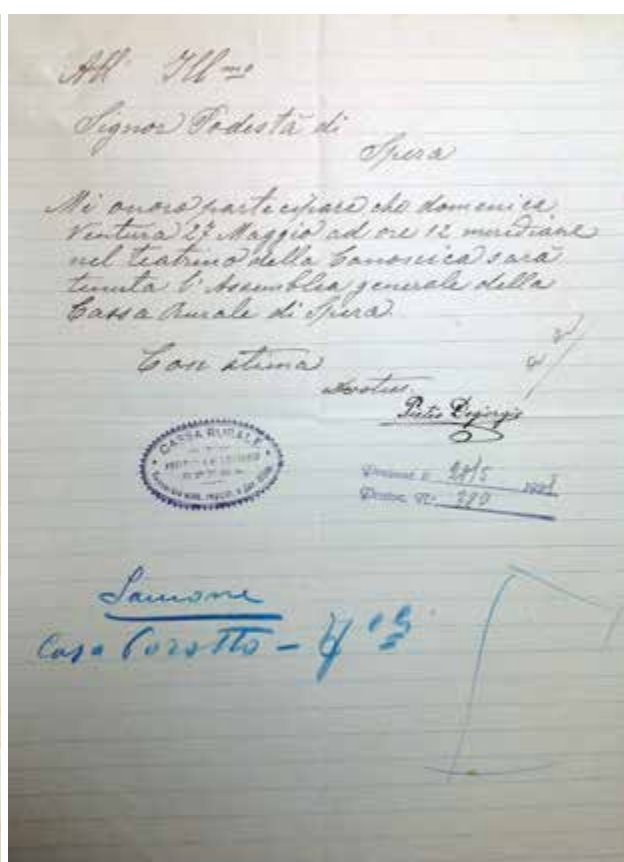 All' Ill.mo
Signor Podestà di
Spera
Mi onoro partecipare che domenica
ventura 27 Maggio ad ore 12 meridiane
nel teatrino della Canonica sarà
tenuta l'Assemblea generale della
Cassa Rurale di Spera.
Con stima
Pietro Degiorgio
CASSA RURALE
28/5
280
Samone
Casa